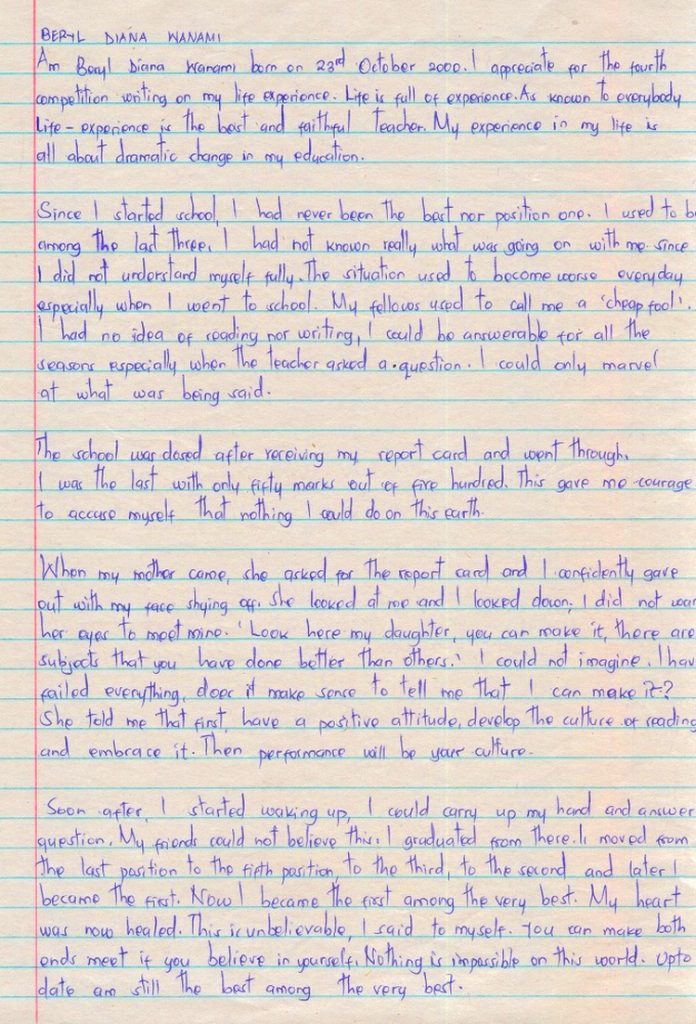 BERYL DIANA WANAMI
Am Beryl Diana Wanami born on 23rd October 2000. I appreciate for the fourth
competition writing on my life experience. Life is full of experience. As known to everybody
Life - experience is the best and faithful teacher. My experience in my life is
all about dramatic change in my education.
Since I started school, I had never been the best nor position one. I used to b
among the last three. I had not known really what was going on with me since
I did not understand myself fully. The situation used to become worse everyday
especially when I went to school. My fellows used to call me a 'cheap fool'.
I had no idea of reading nor writing, I could be answerable for all the
seasons especially when the teacher asked a question. I could only marvel
at what was being said.
The school was closed after receiving my report card and went through.
I was the last with only fifty marks out of five hundred. This gave me courage
to accuse myself that nothing I could do on this earth.
When my mother came, she asked for the report card and I confidently gave
out with my face shying off. She looked at me and I looked down, I did not wan
her eyes to meet mine. 'Look here my daughter, you can make it, there are
subjects that you have done better than others.' I could not imagine. I hav
failed everything, does it make sense to tell me that I can make it?
She told me that first, have a positive attitude, develop the culture of reading
and embrace it. Then performance will be your culture.
Soon after, I started waking up, I could carry up my hand and answer
question. My friends could not believe this. I graduated from there. I moved from
the last position to the fifth position, to the third, to the second and later I
became the first. Now I became the first among the very best. My heart
was now healed. This is unbelievable, I said to myself. You can make both
ends meet if you believe in yourself. Nothing is impossible on this world. Upto
date am still the best among the very best.